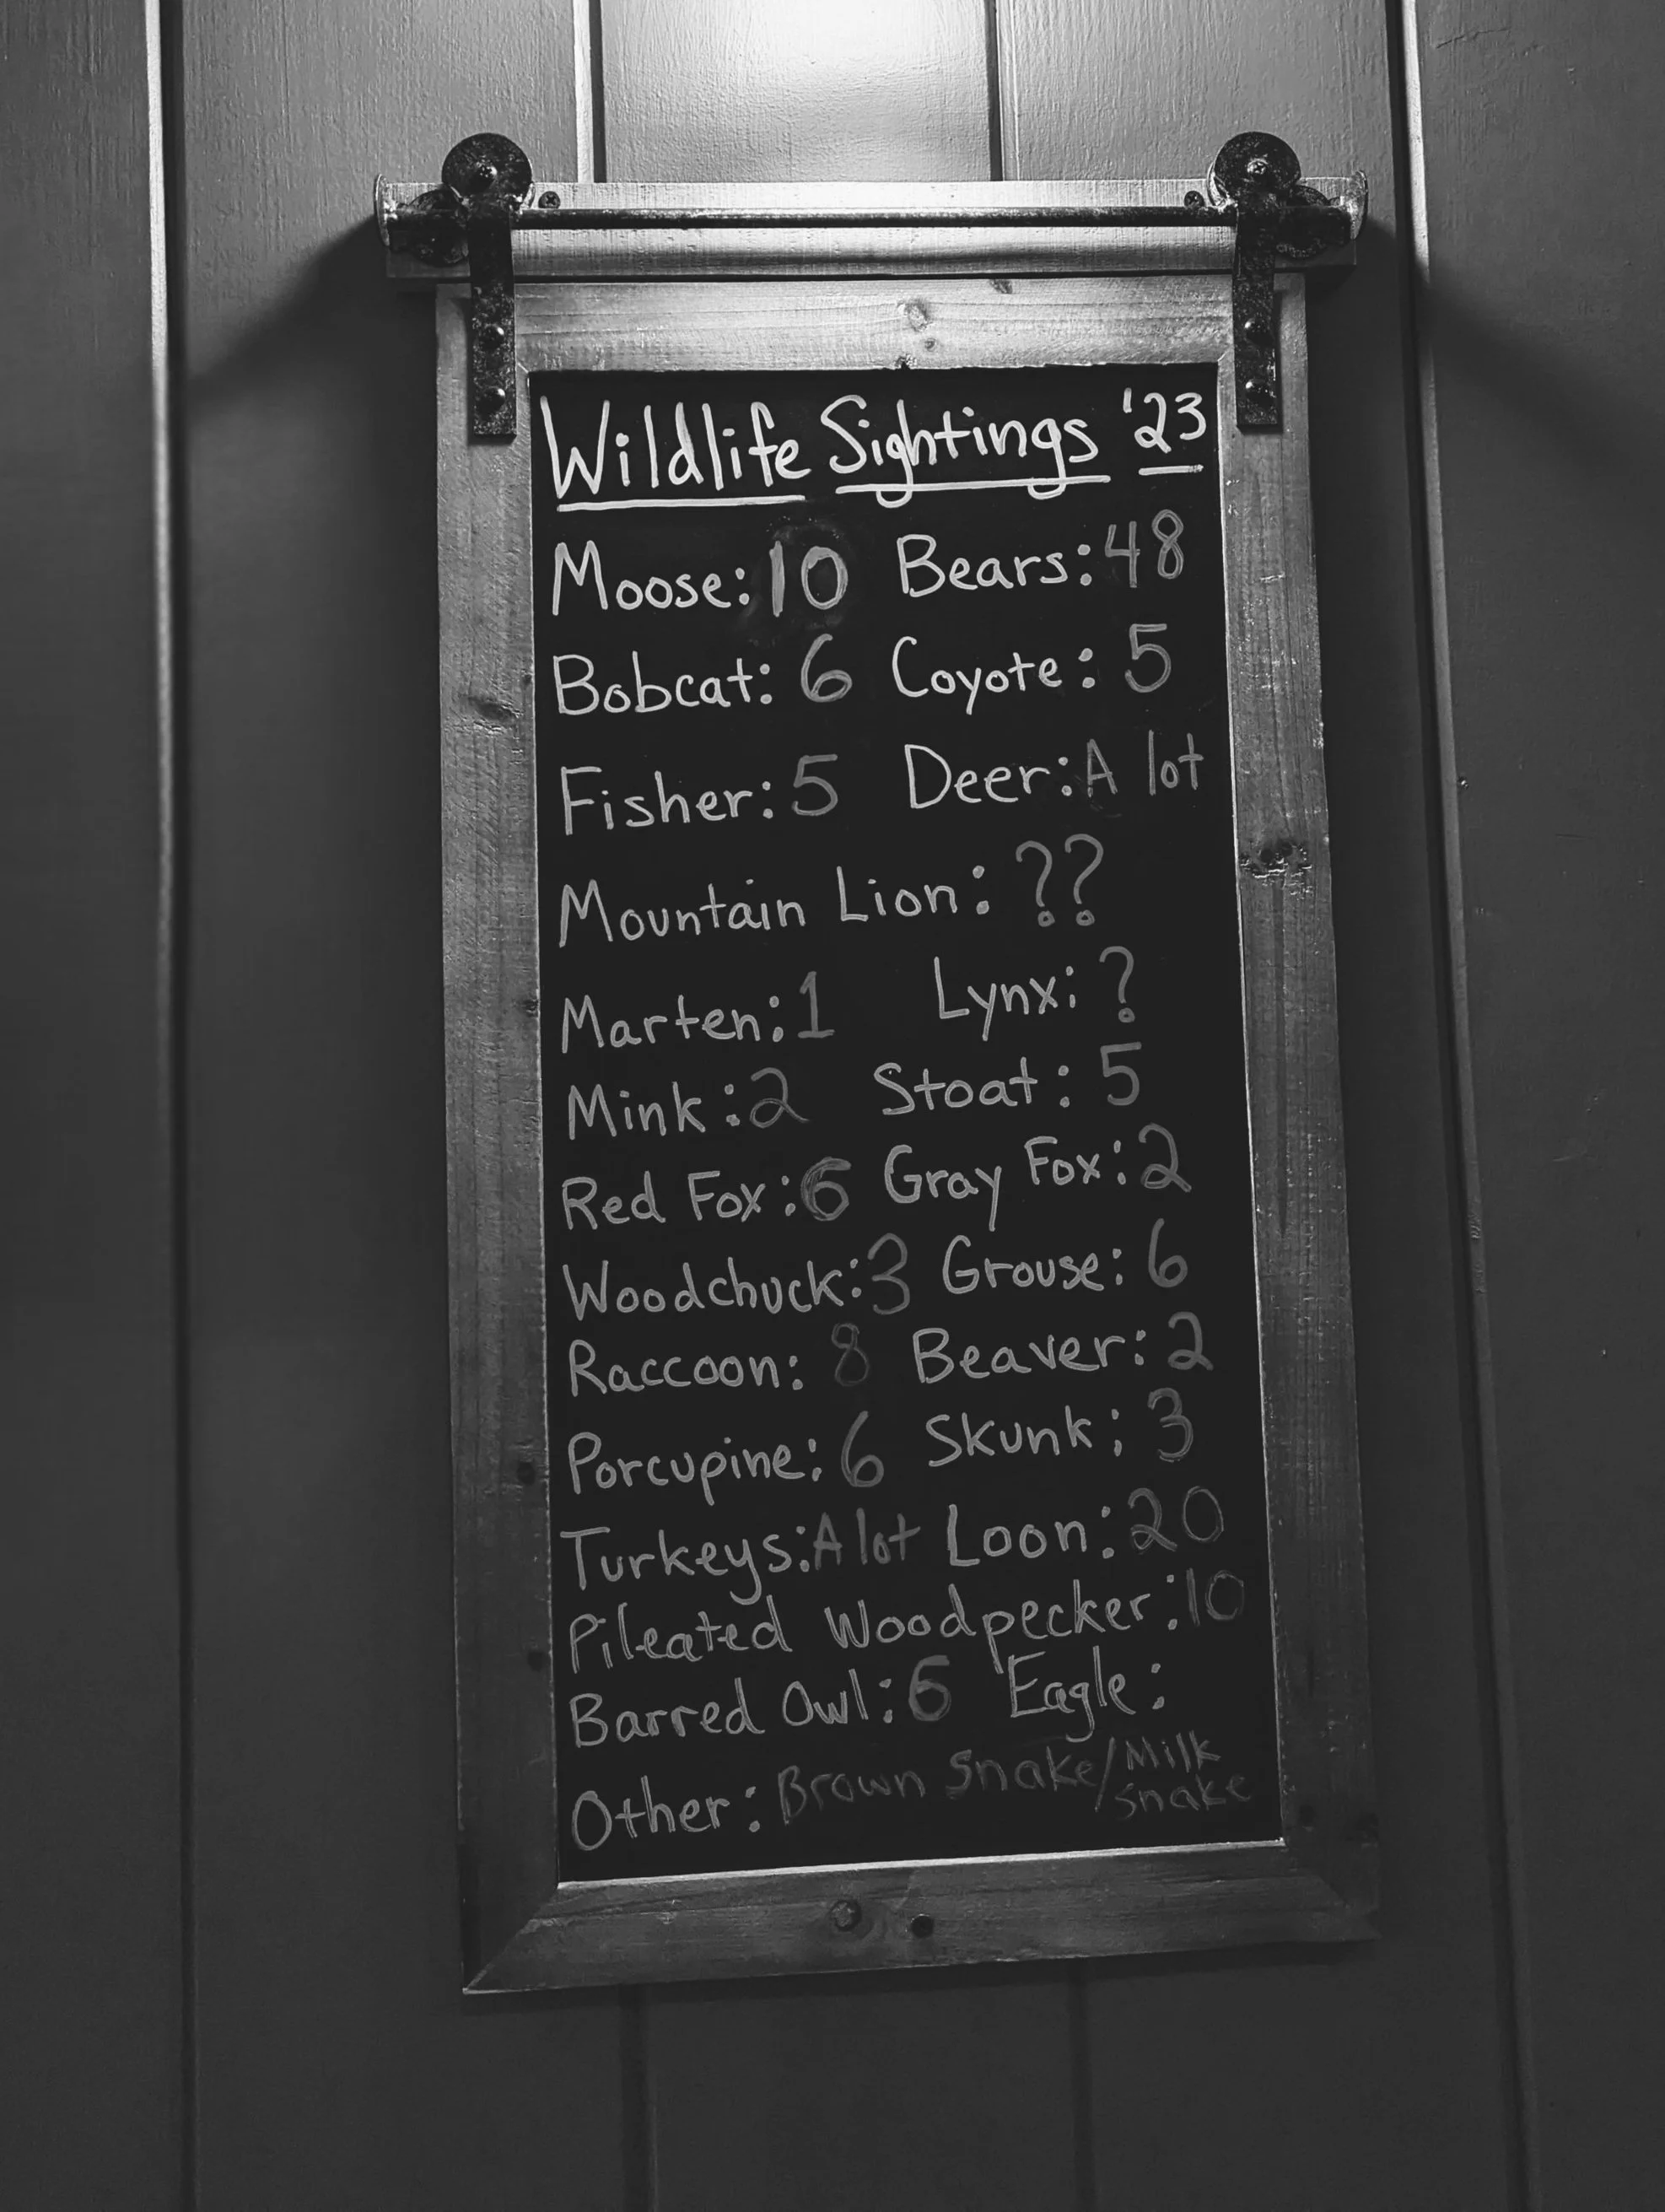 Wildlife Sightings '23
Moose: 10 Bears: 48
Bobcat: 6 Coyote: 5
Fisher: 5 Deer: A lot
Mountain Lion: ??
Marten: 1 Lynx: ?
Mink: 2 Stoat: 5
Red Fox: 6 Gray Fox: 2
Woodchuck: 3 Grouse: 6
Raccoon: 8 Beaver: 2
Porcupine: 6 Skunk: 3
Turkeys: A lot Loon: 20
Pileated Woodpecker: 10
Barred Owl: 6 Eagle:
Other: Brown Snake/Milk Snake